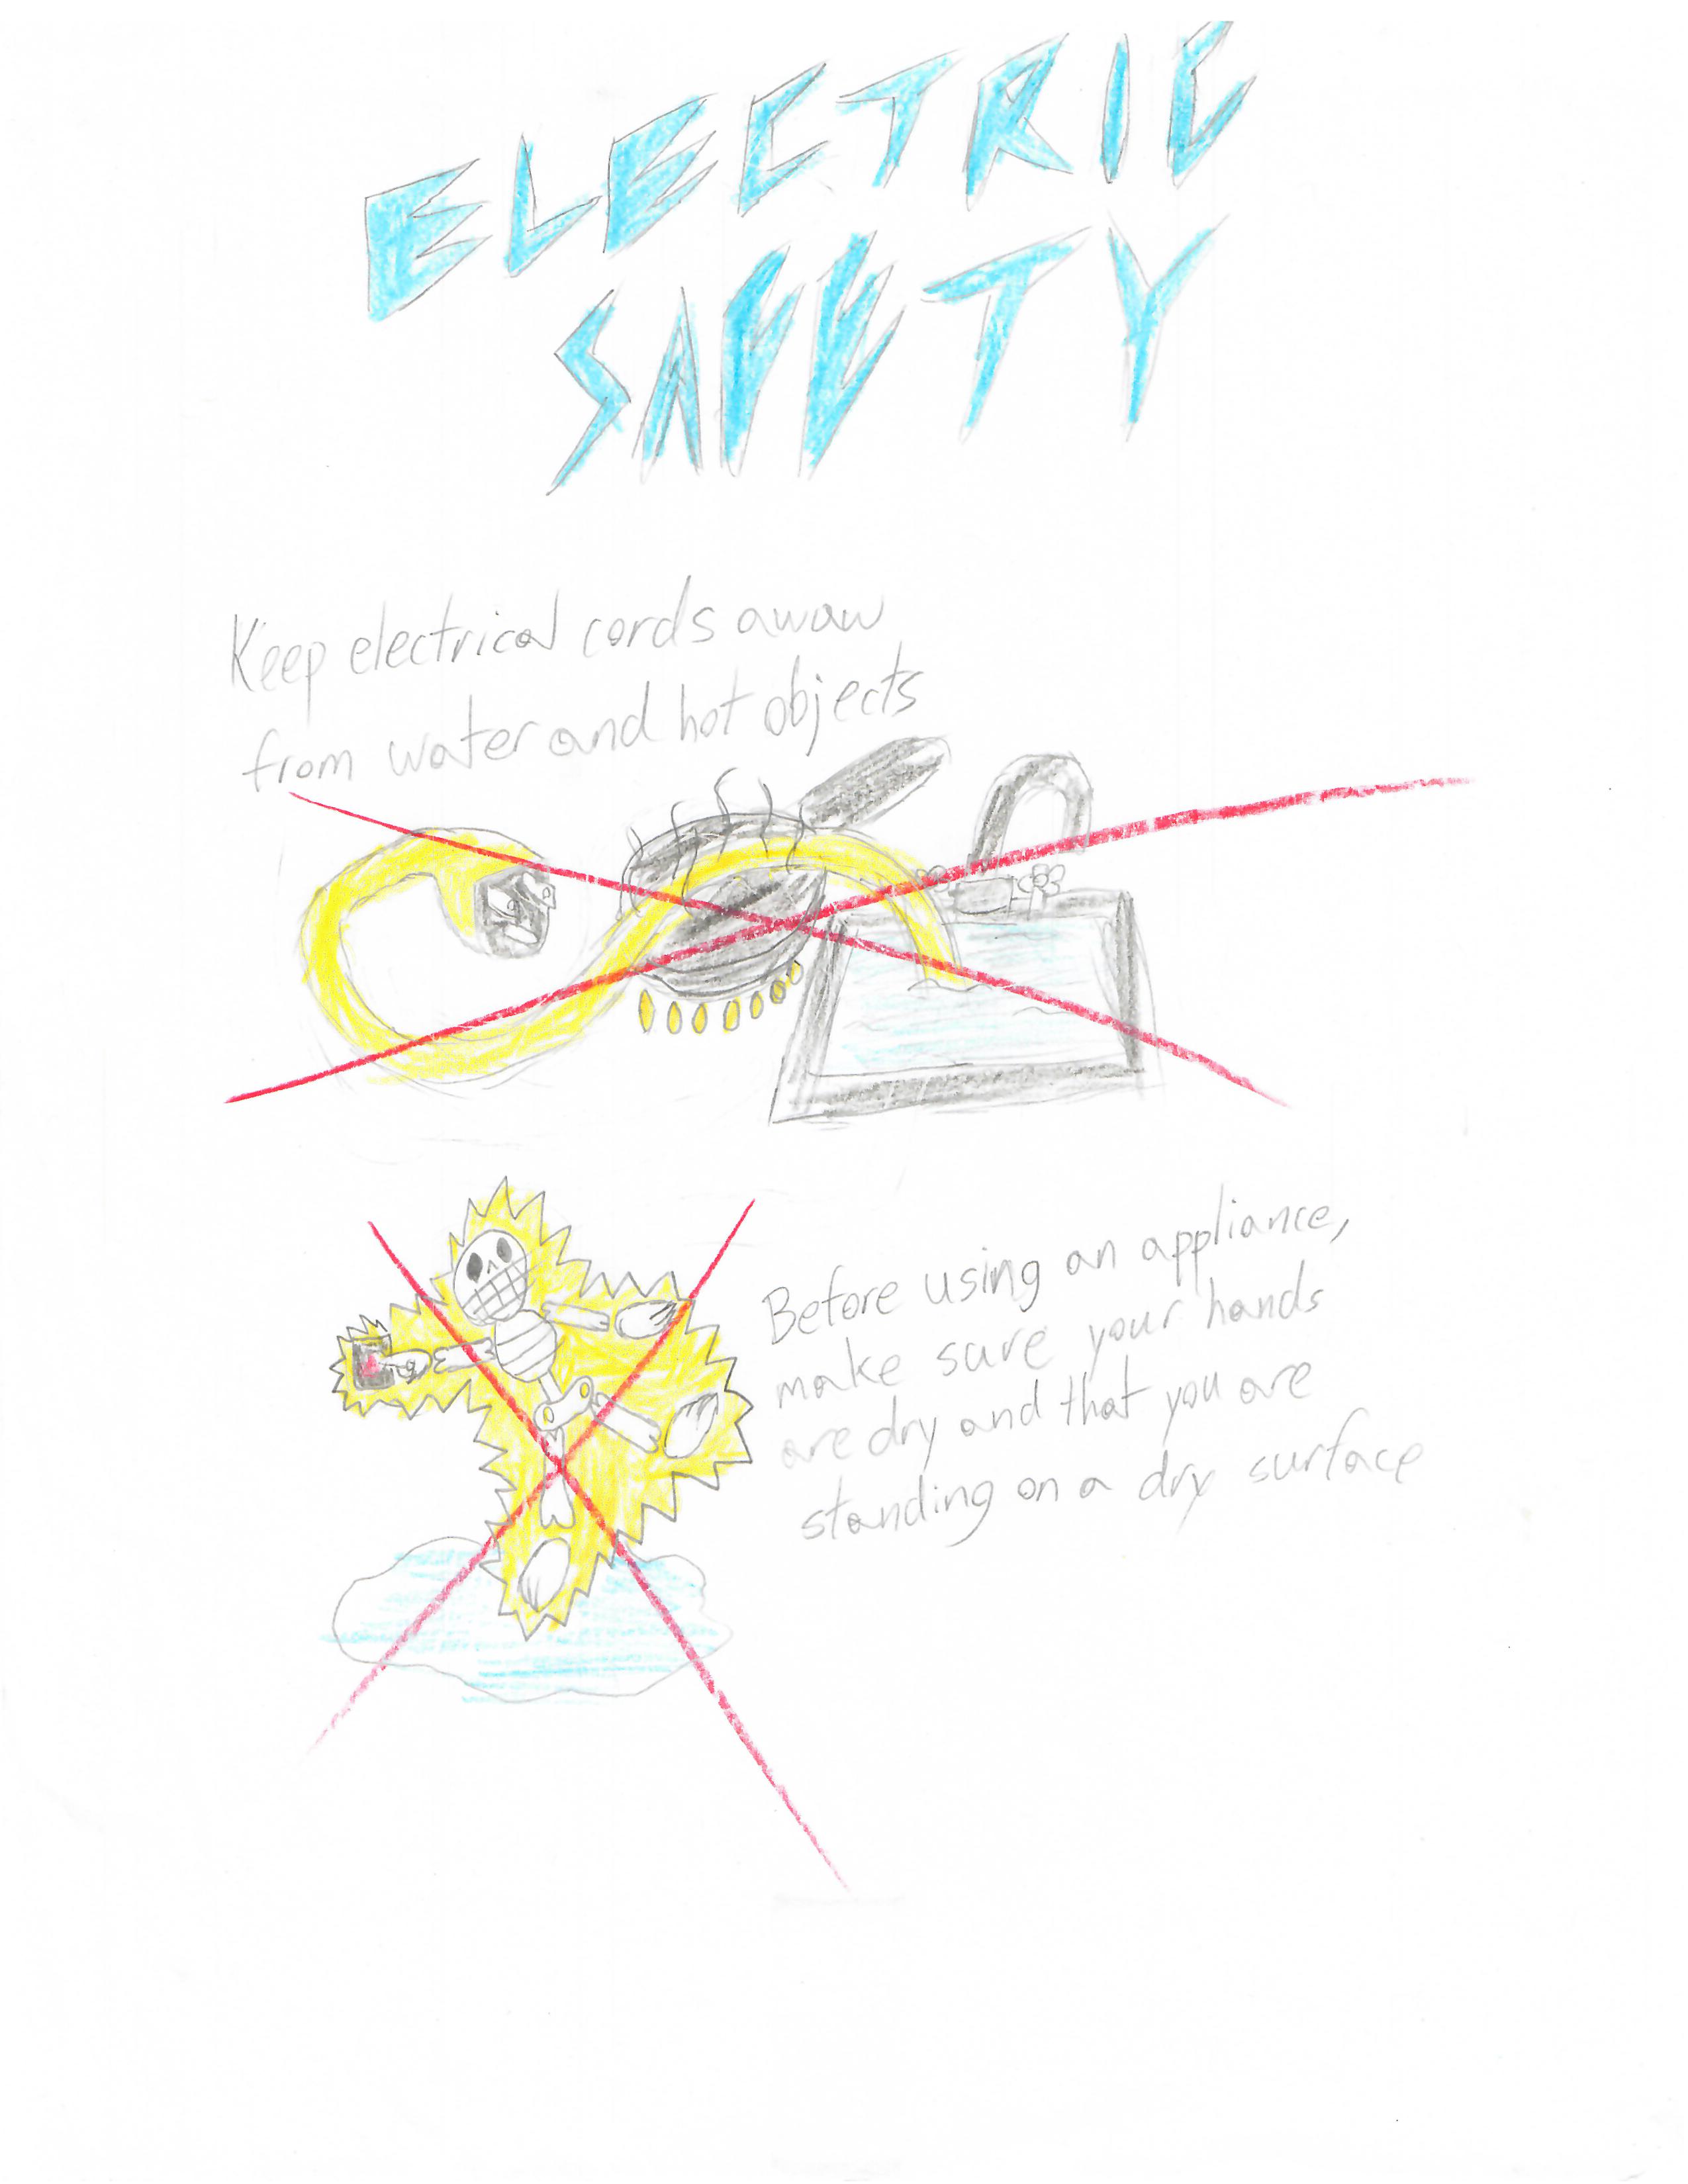 ELECTRIC
SAFETY
Keep electrical cords awaw
from water and hot objects
Before using an appliance,
make sure your hands
are dry and that you are
standing on a dry surface